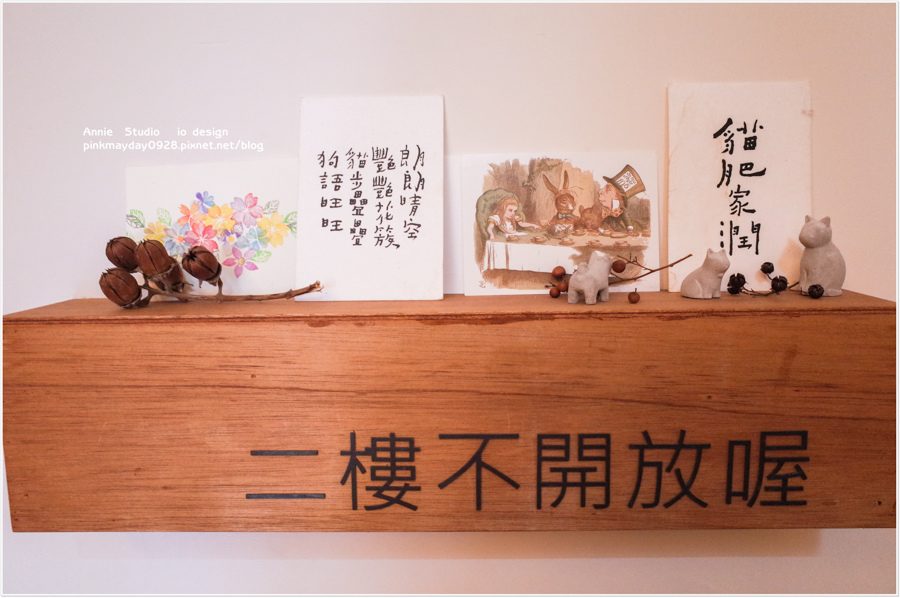 Annie Studio io design
pinkmayday0928.pixnet.net/blog
朗朗晴空
豔豔花簇
貓步
狗語旺旺
貓肥家潤
二樓不開放喔